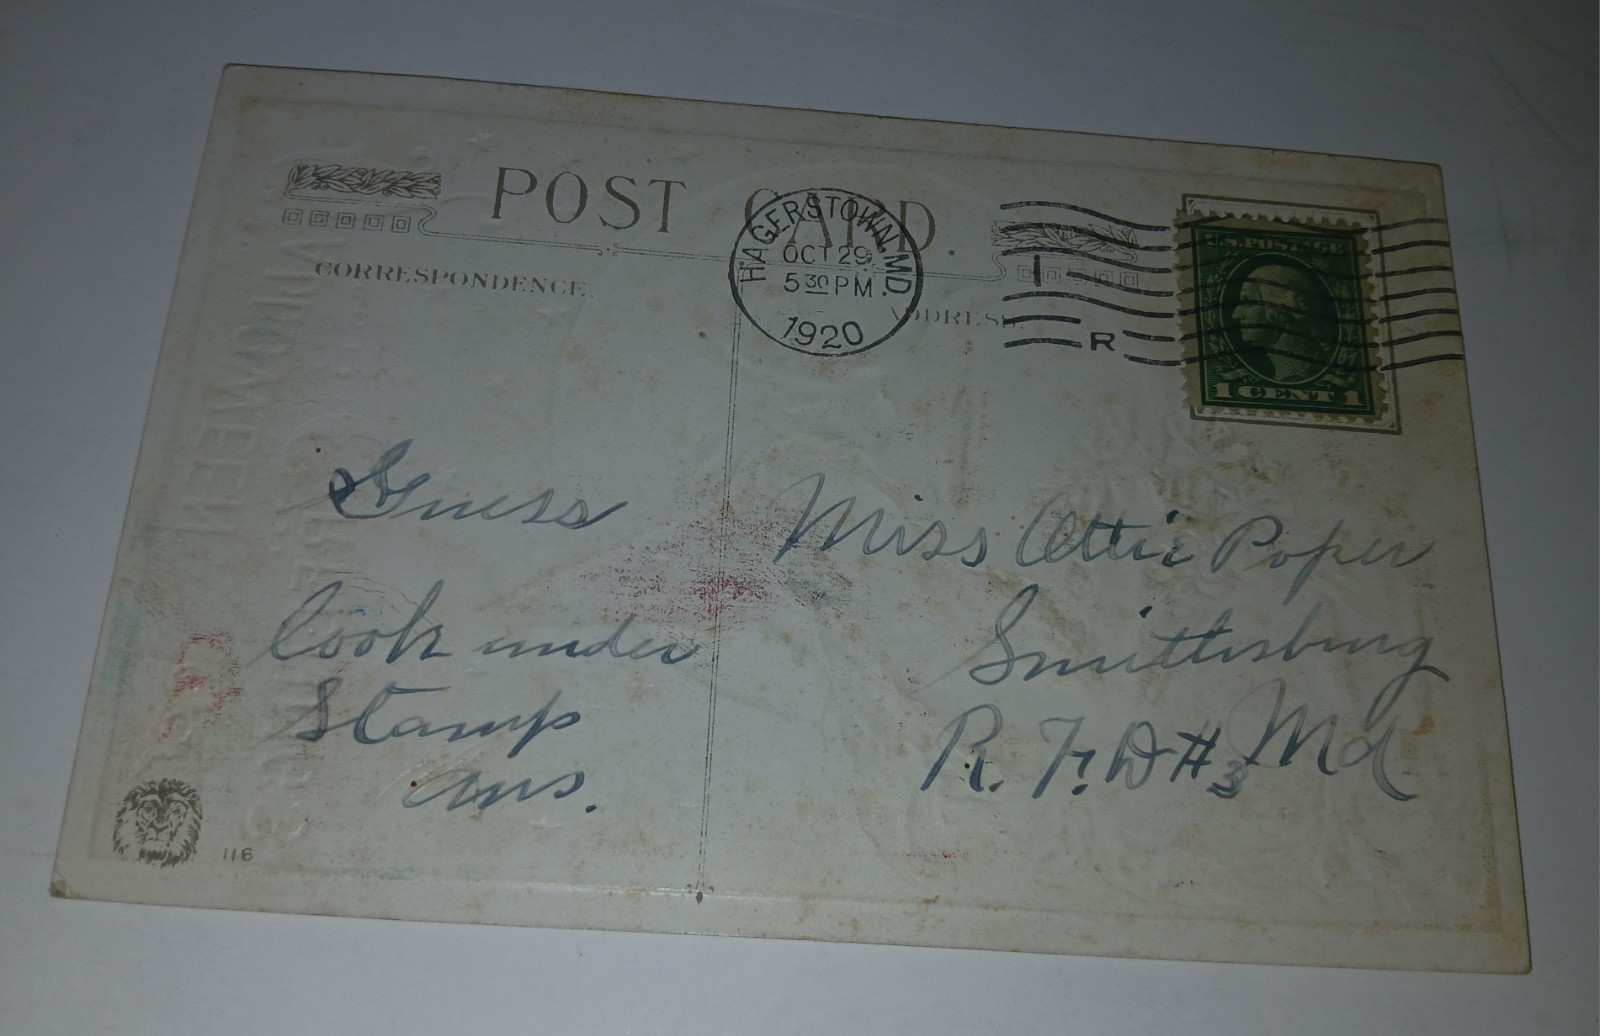 POST CARD.
HAGERSTOWN, MD.
OCT 29
5 30 PM
1920
U.S. POSTAGE
1 CENT 1
CORRESPONDENCE.
ADDRESS.
1
R
Guess
look under
Stamp
ans.
Miss Attie Poper
Smithsburg
R. F. D #3 Md.
116